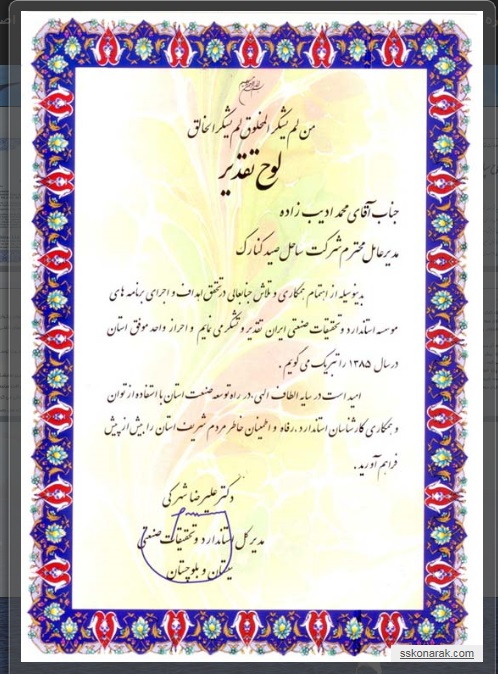 من لم یشکر المخلوق لم یشکر الخالق
لوح تقدیر
جناب آقای محمد ادیب زاده
مدیرعامل محترم شرکت ساحل صید کنارک
بدینوسیله از اهتمام، همکاری و تلاش جنابعالی در تحقق اهداف و اجرای برنامه های
موسسه استاندارد و تحقیقات صنعتی ایران تقدیر و تشکر می نمائیم و احراز واحد موفق استان
در سال ۱۳۸۵ را تبریک می گوییم.
امید است در سایه الطاف الهی، در راه توسعه صنعت استان با استفاده از توان
و همکاری کارشناسان استاندارد، رفاه و اطمینان خاطر مردم شریف استان را بیش از پیش
فراهم آورید.
دکتر علیرضا شهرکی
مدیر کل استاندارد و تحقیقات صنعتی
سیستان و بلوچستان
sskonarak.com